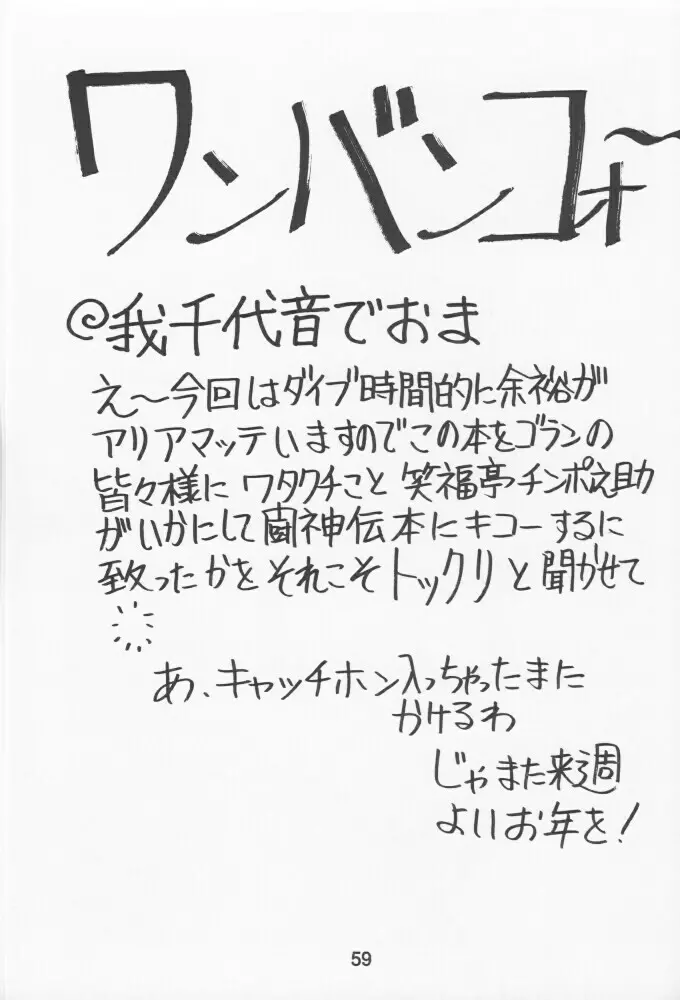 ワンバンコォ〜
@我千代音でおま
え〜今回はダイブ時間的に余裕が
アリアマッテいますのでこの本をゴランの
皆々様にワタクチこと笑福亭チンポ之助
がいかにして闘神伝本にキコーするに
至ったかをそれこそトックリと聞かせて
あ、キャッチホン入っちゃったまた
かけるわ
じゃまた来週
よいお年を!
59